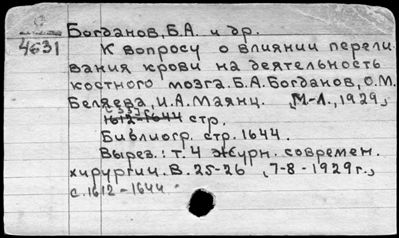 Богданов, Б.А. и др.
4631
К вопросу о влиянии перели-
вания крови на деятельность
костного мозга. Б.А. Богданов, О.М.
Беляева, И.А. Маянц. „М-Л., 1929„
1612-1644 стр.
Библиогр. стр. 1644.
Вырез.: т. 4 журн. современ.
хирургии. В. 25-26 „7-8-1929г.„
с. 1612-1644